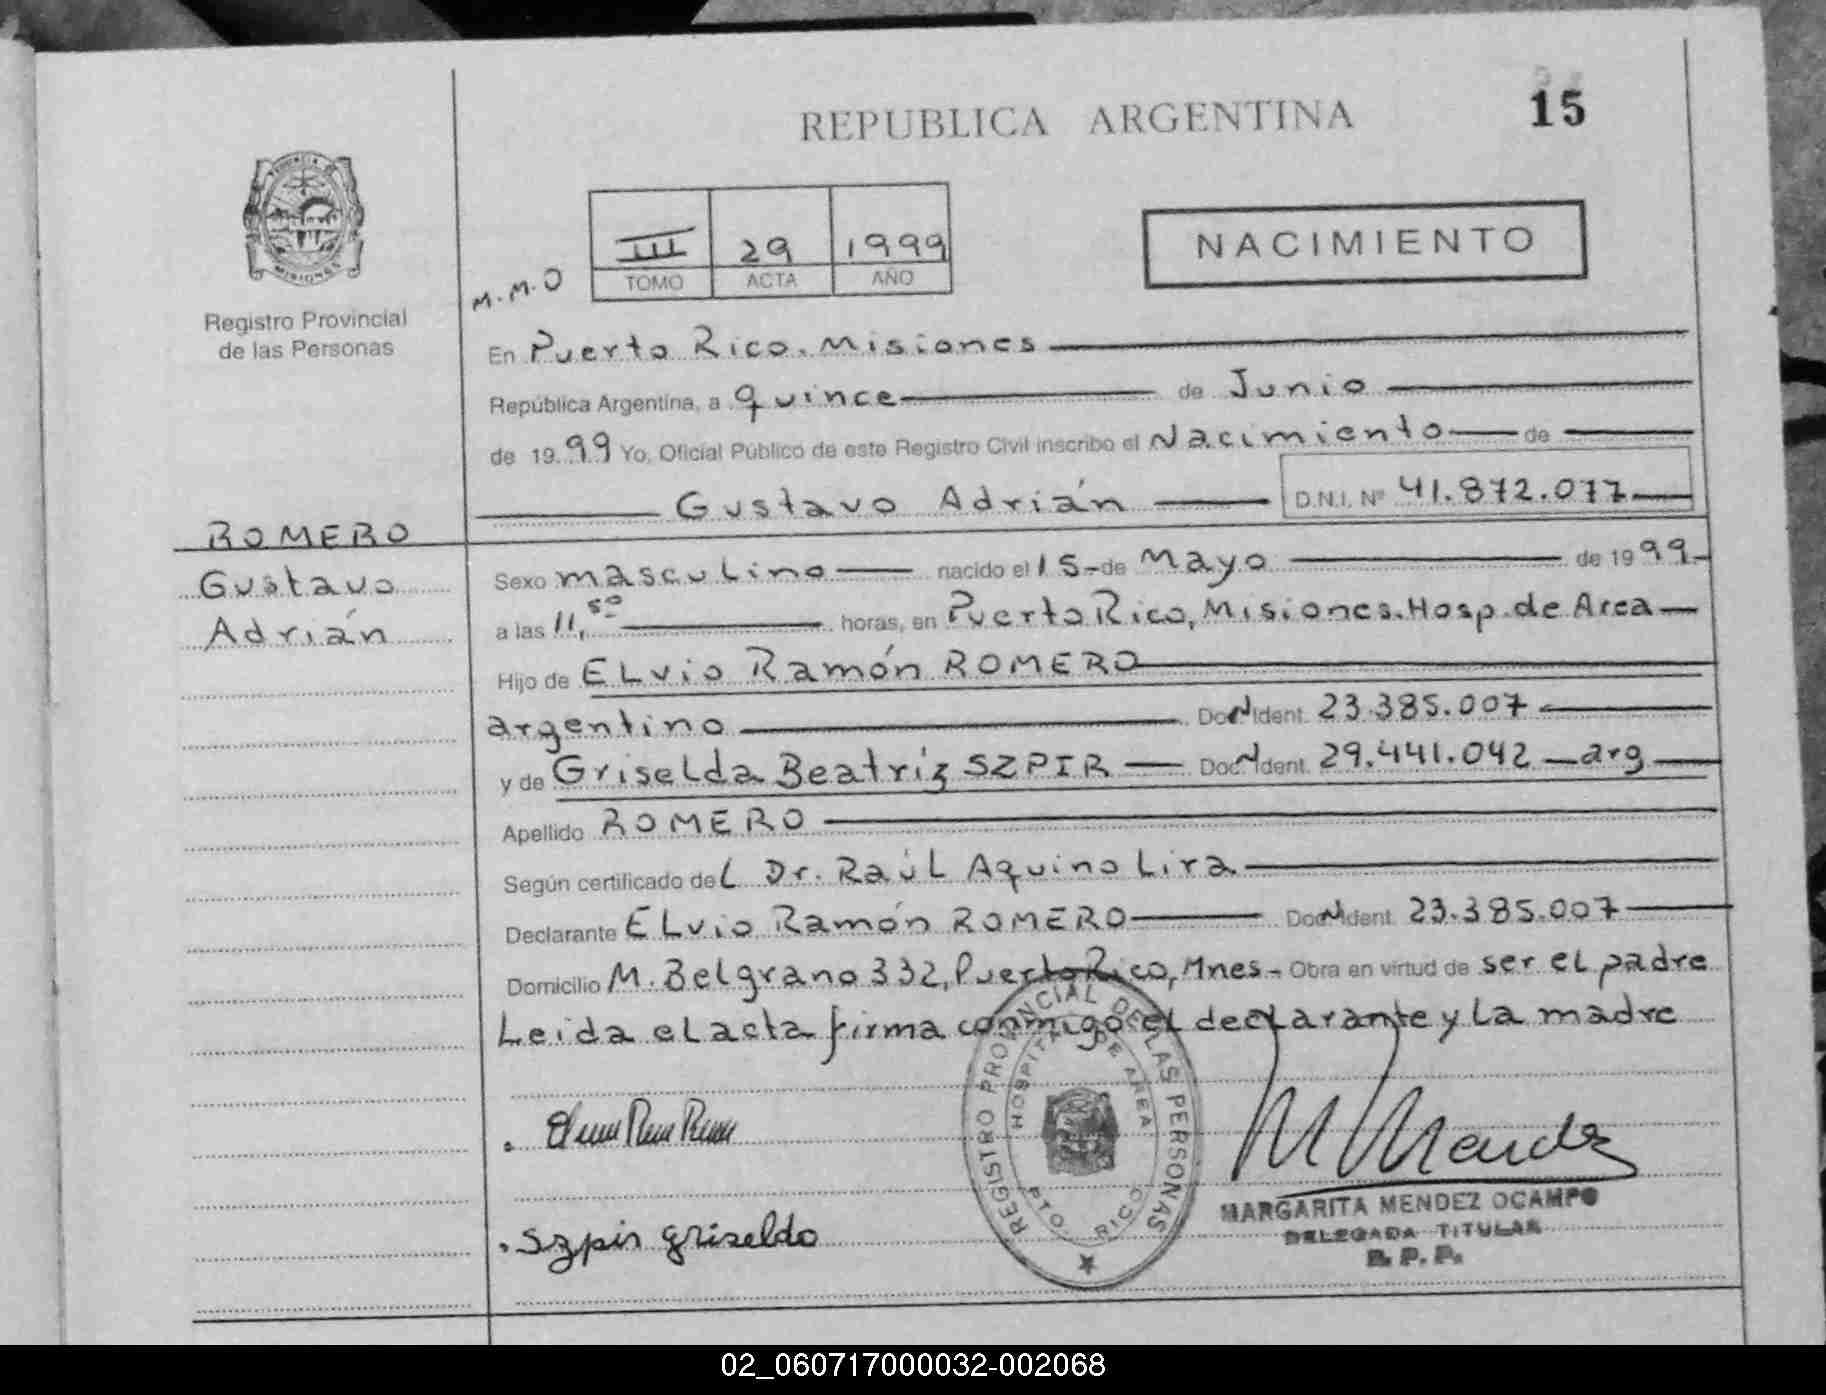 REPUBLICA ARGENTINA
15
PROVINCIA DE MISIONES
Registro Provincial
de las Personas
M.M.O
III 29 1999
TOMO ACTA AÑO
NACIMIENTO
En Puerto Rico. Misiones
República Argentina, a quince de Junio
de 19 99 Yo, Oficial Público de este Registro Civil inscribo el Nacimiento de
Gustavo Adrián D.N.I. Nº 41.872.077
ROMERO
Gustavo
Adrián
Sexo masculino nacido el 15 de Mayo de 19 99
a las 11,50 horas, en Puerto Rico, Misiones. Hosp. de Area
Hijo de ELvio Ramón ROMERO
argentino Doc. Ident. 23.385.007
y de Griselda Beatriz SZPIR Doc. Ident. 29.441.042 arg
Apellido ROMERO
Según certificado del Dr. Raúl Aquino Lira
Declarante ELvio Ramón ROMERO Doc. Ident. 23.385.007
Domicilio M. Belgrano 332, Puerto Rico, Mnes - Obra en virtud de ser el padre
Leida el acta firma conmigo el declarante y la madre
REGISTRO PROVINCIAL DE LAS PERSONAS
HOSPITAL DE AREA
PTO. RICO
M Mendez
MARGARITA MENDEZ OCAMPO
DELEGADA TITULAR
R. P. P.
Szpir griselda
02_060717000032-002068